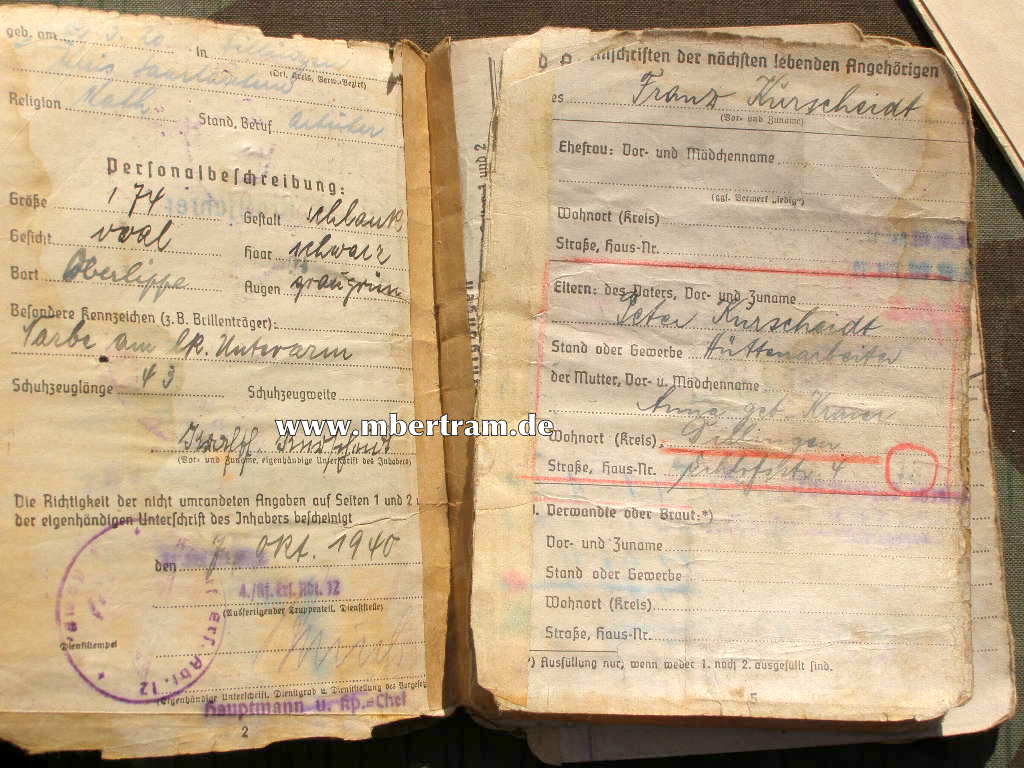 geb. am 3. 20 in Dillingen
(Ort, Kreis, Verw.-Bezirk)
Kreis Saarlautern
Religion Kath. Stand, Beruf Schüler
Personalbeschreibung:
Größe 174 Gestalt schlank
Gesicht oval Haar schwarz
Bart Oberlippe Augen graugrün
Besondere Kennzeichen (z. B. Brillenträger):
Narbe am lk. Unterarm
Schuhzeuglänge 43 Schuhzeugweite
www.mbertram.de
(Vor- und Zuname, eigenhändige Unterschrift des Inhabers)
Die Richtigkeit der nicht umrandeten Angaben auf Seiten 1 und 2 u.
der eigenhändigen Unterschrift des Inhabers bescheinigt
den 7. Okt. 1940
(Ausfertigender Truppenteil, Dienststelle)
Dienststempel
Abt. 12
(Eigenhändige Unterschrift, Dienstgrad u. Dienststellung des Vorgeset
Hauptmann u. Kp.=Chef
2
Anschriften der nächsten lebenden Angehörigen
es Franz Kurscheidt
(Vor- und Zuname)
Ehefrau: Vor- und Mädchenname
(ggf. Vermerk „ledig")
Wohnort (Kreis)
Straße, Haus-Nr.
Eltern: des Vaters, Vor- und Zuname
Peter Kurscheidt
Stand oder Gewerbe Hüttenarbeiter
der Mutter, Vor- u. Mädchenname
Anna geb.
Wohnort (Kreis) Dillingen
Straße, Haus-Nr. 4
Verwandte oder Braut:*)
Vor- und Zuname
Stand oder Gewerbe
Wohnort (Kreis)
Straße, Haus-Nr.
*) Ausfüllung nur, wenn weder 1. noch 2. ausgefüllt sind.
5